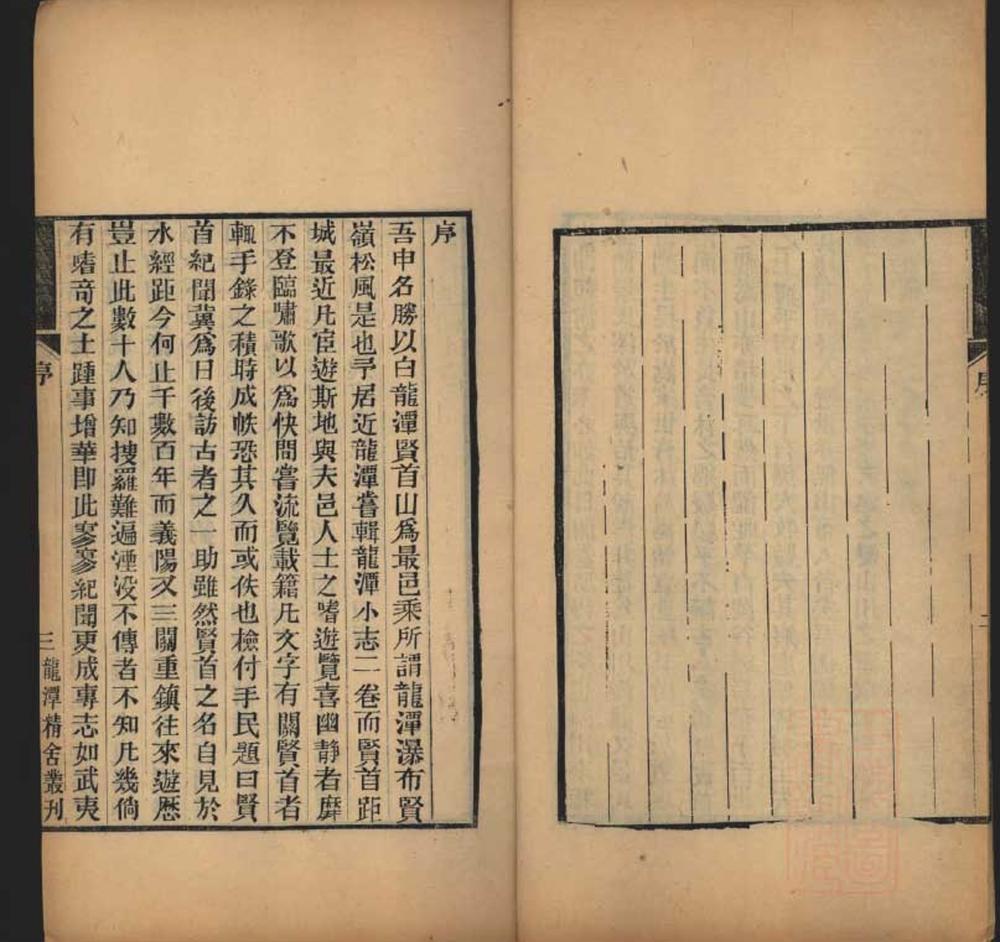 序
吾申名勝以白龍潭賢首山爲最邑乘所謂龍潭瀑布賢
嶺松風是也予居近龍潭嘗輯龍潭小志二卷而賢首距
城最近凡宦遊斯地與夫邑人士之嗜遊覽喜幽靜者靡
不登臨嘯歌以爲快間嘗流覽載籍凡文字有關賢首者
輒手錄之積時成帙恐其久而或佚也檢付手民題曰賢
首紀聞冀爲日後訪古者之一助雖然賢首之名自見於
水經距今何止千數百年而義陽又三關重鎮往來遊歷
豈止此數十人乃知搜羅難遍湮没不傳者不知凡幾倘
有嗜奇之士踵事增華即此寥寥紀聞更成專志如武夷
序
三
龍潭精舍叢刊